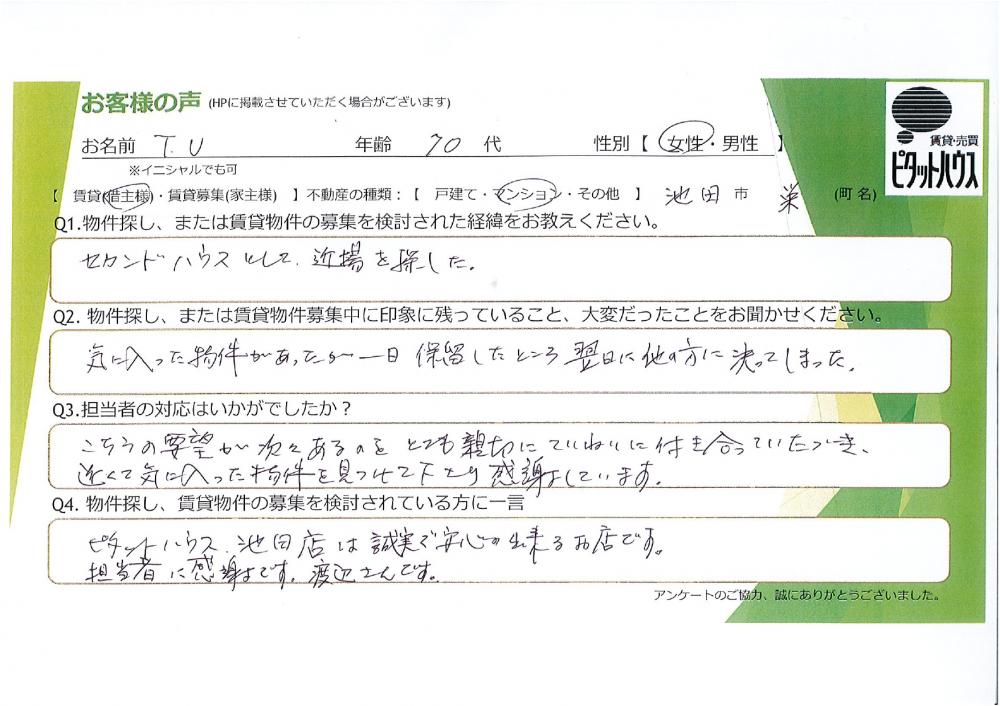 お客様の声 (HPに掲載させていただく場合がございます)
賃貸・売買
ピタットハウス
お名前 T.U 年齢 70 代 性別【 女性・男性 】
※イニシャルでも可
【 賃貸(借主様)・賃貸募集(家主様) 】不動産の種類:【 戸建て・マンション・その他 】 池田 市 栄 (町名)
Q1.物件探し、または賃貸物件の募集を検討された経緯をお教えください。
セカンドハウスとして、近場を探した。
Q2. 物件探し、または賃貸物件募集中に印象に残っていること、大変だったことをお聞かせください。
気に入った物件があったが一日保留したところ翌日に他の方に決ってしまった。
Q3.担当者の対応はいかがでしたか？
こちらの要望が次々あるのをとても親切にていねいに付き合っていただき、
近くて気に入った物件を見つけて下さり感謝しています。
Q4. 物件探し、賃貸物件の募集を検討されている方に一言
ピタットハウス、池田店は誠実で安心の出来るお店です。
担当者に感謝です。渡辺さんです。
アンケートのご協力、誠にありがとうございました。